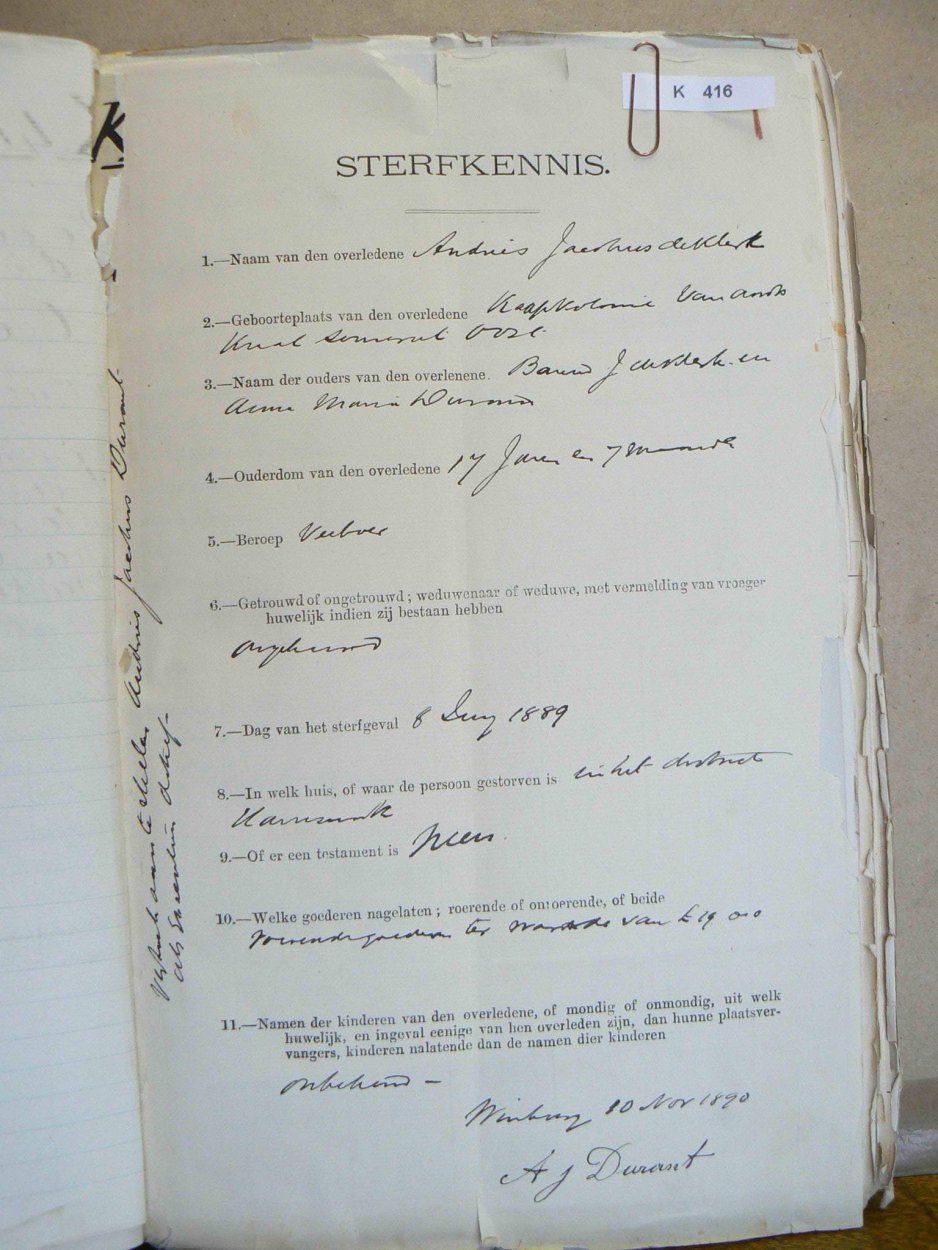 K 416
K
STERFKENNIS.
1.—Naam van den overledene Andries Jacobus de Klerk
2.—Geboorteplaats van den overledene Kaapkolonie Van Aards
Kraal Somerset Oost
3.—Naam der ouders van den overlenene. Barend J de Klerk en
Anna Maria Durand
4.—Ouderdom van den overledene 17 Jaren en 7 maande
5.—Beroep Veeboer
6.—Getrouwd of ongetrouwd ; weduwenaar of weduwe, met vermelding van vroeger
huwelijk indien zij bestaan hebben
7.—Dag van het sterfgeval 8 1889
8.—In welk huis, of waar de persoon gestorven is in het district
9.—Of er een testament is Neen.
10.—Welke goederen nagelaten ; roerende of onroerende, of beide
roerende goederen ter waarde van £19
11.—Namen der kinderen van den overledene, of mondig of onmondig, uit welk
huwelijk, en ingeval eenige van hen overleden zijn, dan hunne plaatsver-
vangers, kinderen nalatende dan de namen dier kinderen
onbekend —
Winburg 10 Nov 1890
A J Durant
aan te stellen Andries Jacobus Durant
als